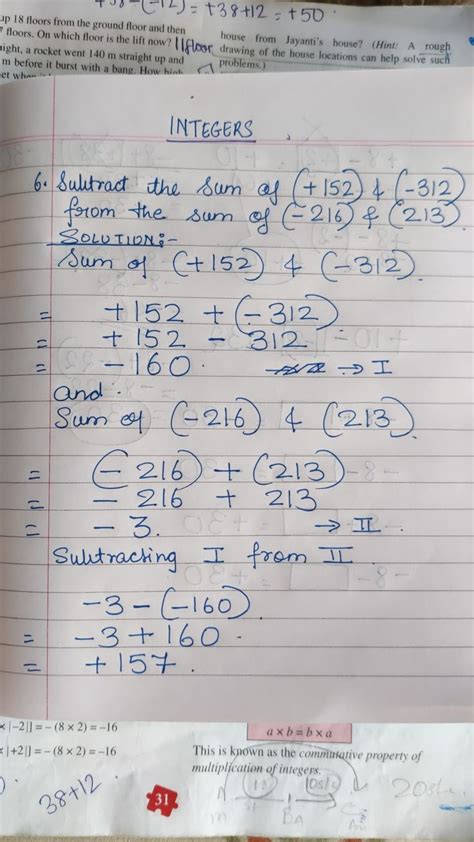 = +38+12 = +50.
up 18 floors from the ground floor and then
floors. On which floor is the lift now? 11floor
ight, a rocket went 140 m straight up and
m before it burst with a bang. How high
house from Jayanti's house? (Hint: A rough
drawing of the house locations can help solve such
problems.)
INTEGERS
6. Subtract the sum of (+152) & (-312)
from the sum of (-216) & (213).
SOLUTION:-
Sum of (+152) & (-312).
= +152 + (-312)
= +152 - 312
= -160. → I
and.
Sum of (-216) & (213)
= (-216) + (213)
= - 216 + 213
= - 3. → II.
Subtracting I from II.
-3-(-160)
= -3+160.
= +157.
× |-2|] = – (8 × 2) = –16
× |+2|] = – (8 × 2) = –16
a × b = b × a
This is known as the commutative property of
multiplication of integers.
38+12.
31